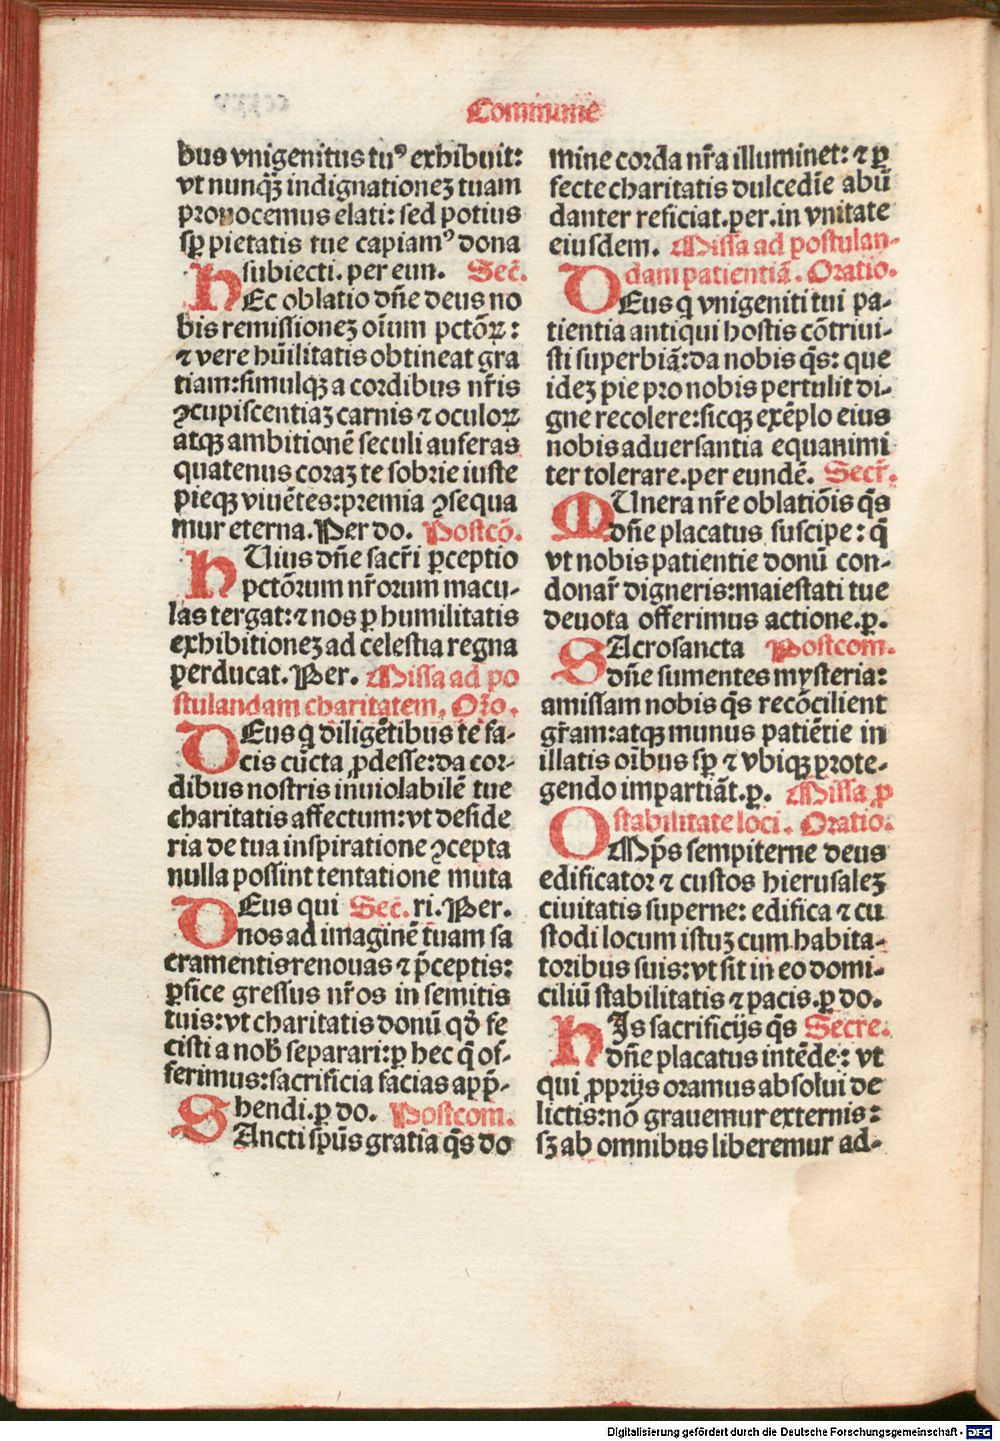 Commune
bus vnigenitus tuꝰ exhibuit:
vt nunq̃ indignationeꝫ tuam
prouocemus elati: sed potius
sp̱ pietatis tue capiamꝰ dona
subiecti. per eun. Sec̃.
HEc oblatio dñe deus no
bis remissioneꝫ oĩum pctõꝝ:
⁊ vere hũilitatis obtineat gra
tiam: simulqꝫ a cordibus nr̃is
ꝯcupiscentiaꝫ carnis ⁊ oculoꝝ
atqꝫ ambitionẽ seculi auferas
quatenus coraꝫ te sobrie iuste
pieqꝫ viuẽtes: premia ꝯsequa
mur eterna. Per do. Postcõ.
HUius dñe sacr̃i ꝑceptio
pctõrum nr̃orum macu-
las tergat: ⁊ nos ꝑ humilitatis
exhibitioneꝫ ad celestia regna
ꝑducat. Per. Missa ad po
stulandam charitatem. Or̃o.
DEus q̃ diligẽtibus te fa-
cis cũcta ꝓdesse: da cor-
dibus nostris inuiolabilẽ tue
charitatis affectum: vt deside
ria de tua inspiratione ꝯcepta
nulla possint tentatione muta
DEus qui Sec̃. ri. Per.
nos ad imaginẽ tuam sa
cramentis renouas ⁊ p̃ceptis:
ꝑfice gressus nr̃os in semitis
tuis: vt charitatis donũ qð fe
cisti a nob̃ separari: ꝑ hec q̃ of-
ferimus: sacrificia facias app̃-
hendi. ꝑ do. Postcom.
SAncti sp̃us gratia q̃s do
mine corda nr̃a illuminet: ⁊ ꝑ
fecte charitatis dulcedĩe abũ
danter reficiat. per. in vnitate
eiusdem. Missa ad postulan-
dam patientiã. Oratio.
DEus q̃ vnigeniti tui pa-
tientia antiqui hostis cõtriui-
sti superbiã: da nobis q̃s: que
ideꝫ pie pro nobis pertulit di-
gne recolere: sicqꝫ exẽplo eius
nobis aduersantia equanimi
ter tolerare. per eundẽ. Secr̃.
MUnera nr̃e oblatiõis q̃s
dñe placatus suscipe: q̃
vt nobis patientie donũ con-
donar̃ digneris: maiestati tue
deuota offerimus actione. ꝑ.
SAcrosancta Postcom.
dñe sumentes mysteria:
amissam nobis q̃s recõcilient
gr̃am: atqꝫ munus patiẽtie in
illatis oĩbus sp̱ ⁊ vbiqꝫ ꝓte-
gendo impartiãt. ꝑ. Missa ꝑ
stabilitate loci. Oratio.
OMp̃s sempiterne deus
edificator ⁊ custos hierusaleꝫ
ciuitatis superne: edifica ⁊ cu
stodi locum istuꝫ cum habita-
toribus suis: vt sit in eo domi-
ciliũ stabilitatis ⁊ pacis. ꝑ do.
HIs sacrificijs q̃s Secre.
dñe placatus intẽde: vt
qui ꝓprijs oramus absolui de
lictis: nõ grauemur externis:
sꝫ ab omnibus liberemur ad-
Digitalisierung gefördert durch die Deutsche Forschungsgemeinschaft - DFG